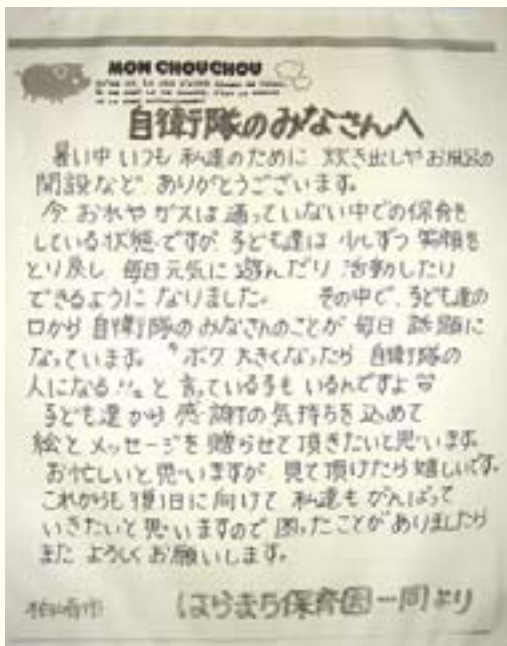 MON CHOUCHOU
自衛隊のみなさんへ
暑い中 いつも 私達のために 炊き出しやお風呂の
開設など ありがとうございます。
今 お水や ガスは 通っていない中での保育を
している状態ですが 子ども達は 少しずつ 笑顔を
とり戻し 毎日元気に 遊んだり 活動したり
できるように なりました。 その中で、子ども達の
口から 自衛隊の みなさんのことが 毎日 話題に
なっています。 "ボク 大きくなったら 自衛隊の
人になる!!" と 言っている子も いるんですよ
子ども達から 感謝の気持ちを 込めて
絵と メッセージを 贈らせて 頂きたいと思います。
お忙しいと思いますが 見て 頂けたら 嬉しいです。
これからも 復旧に向けて 私達も がんばって
いきたいと思いますので 困ったことがありましたら
また よろしく お願いします。
はらまち保育園一同より